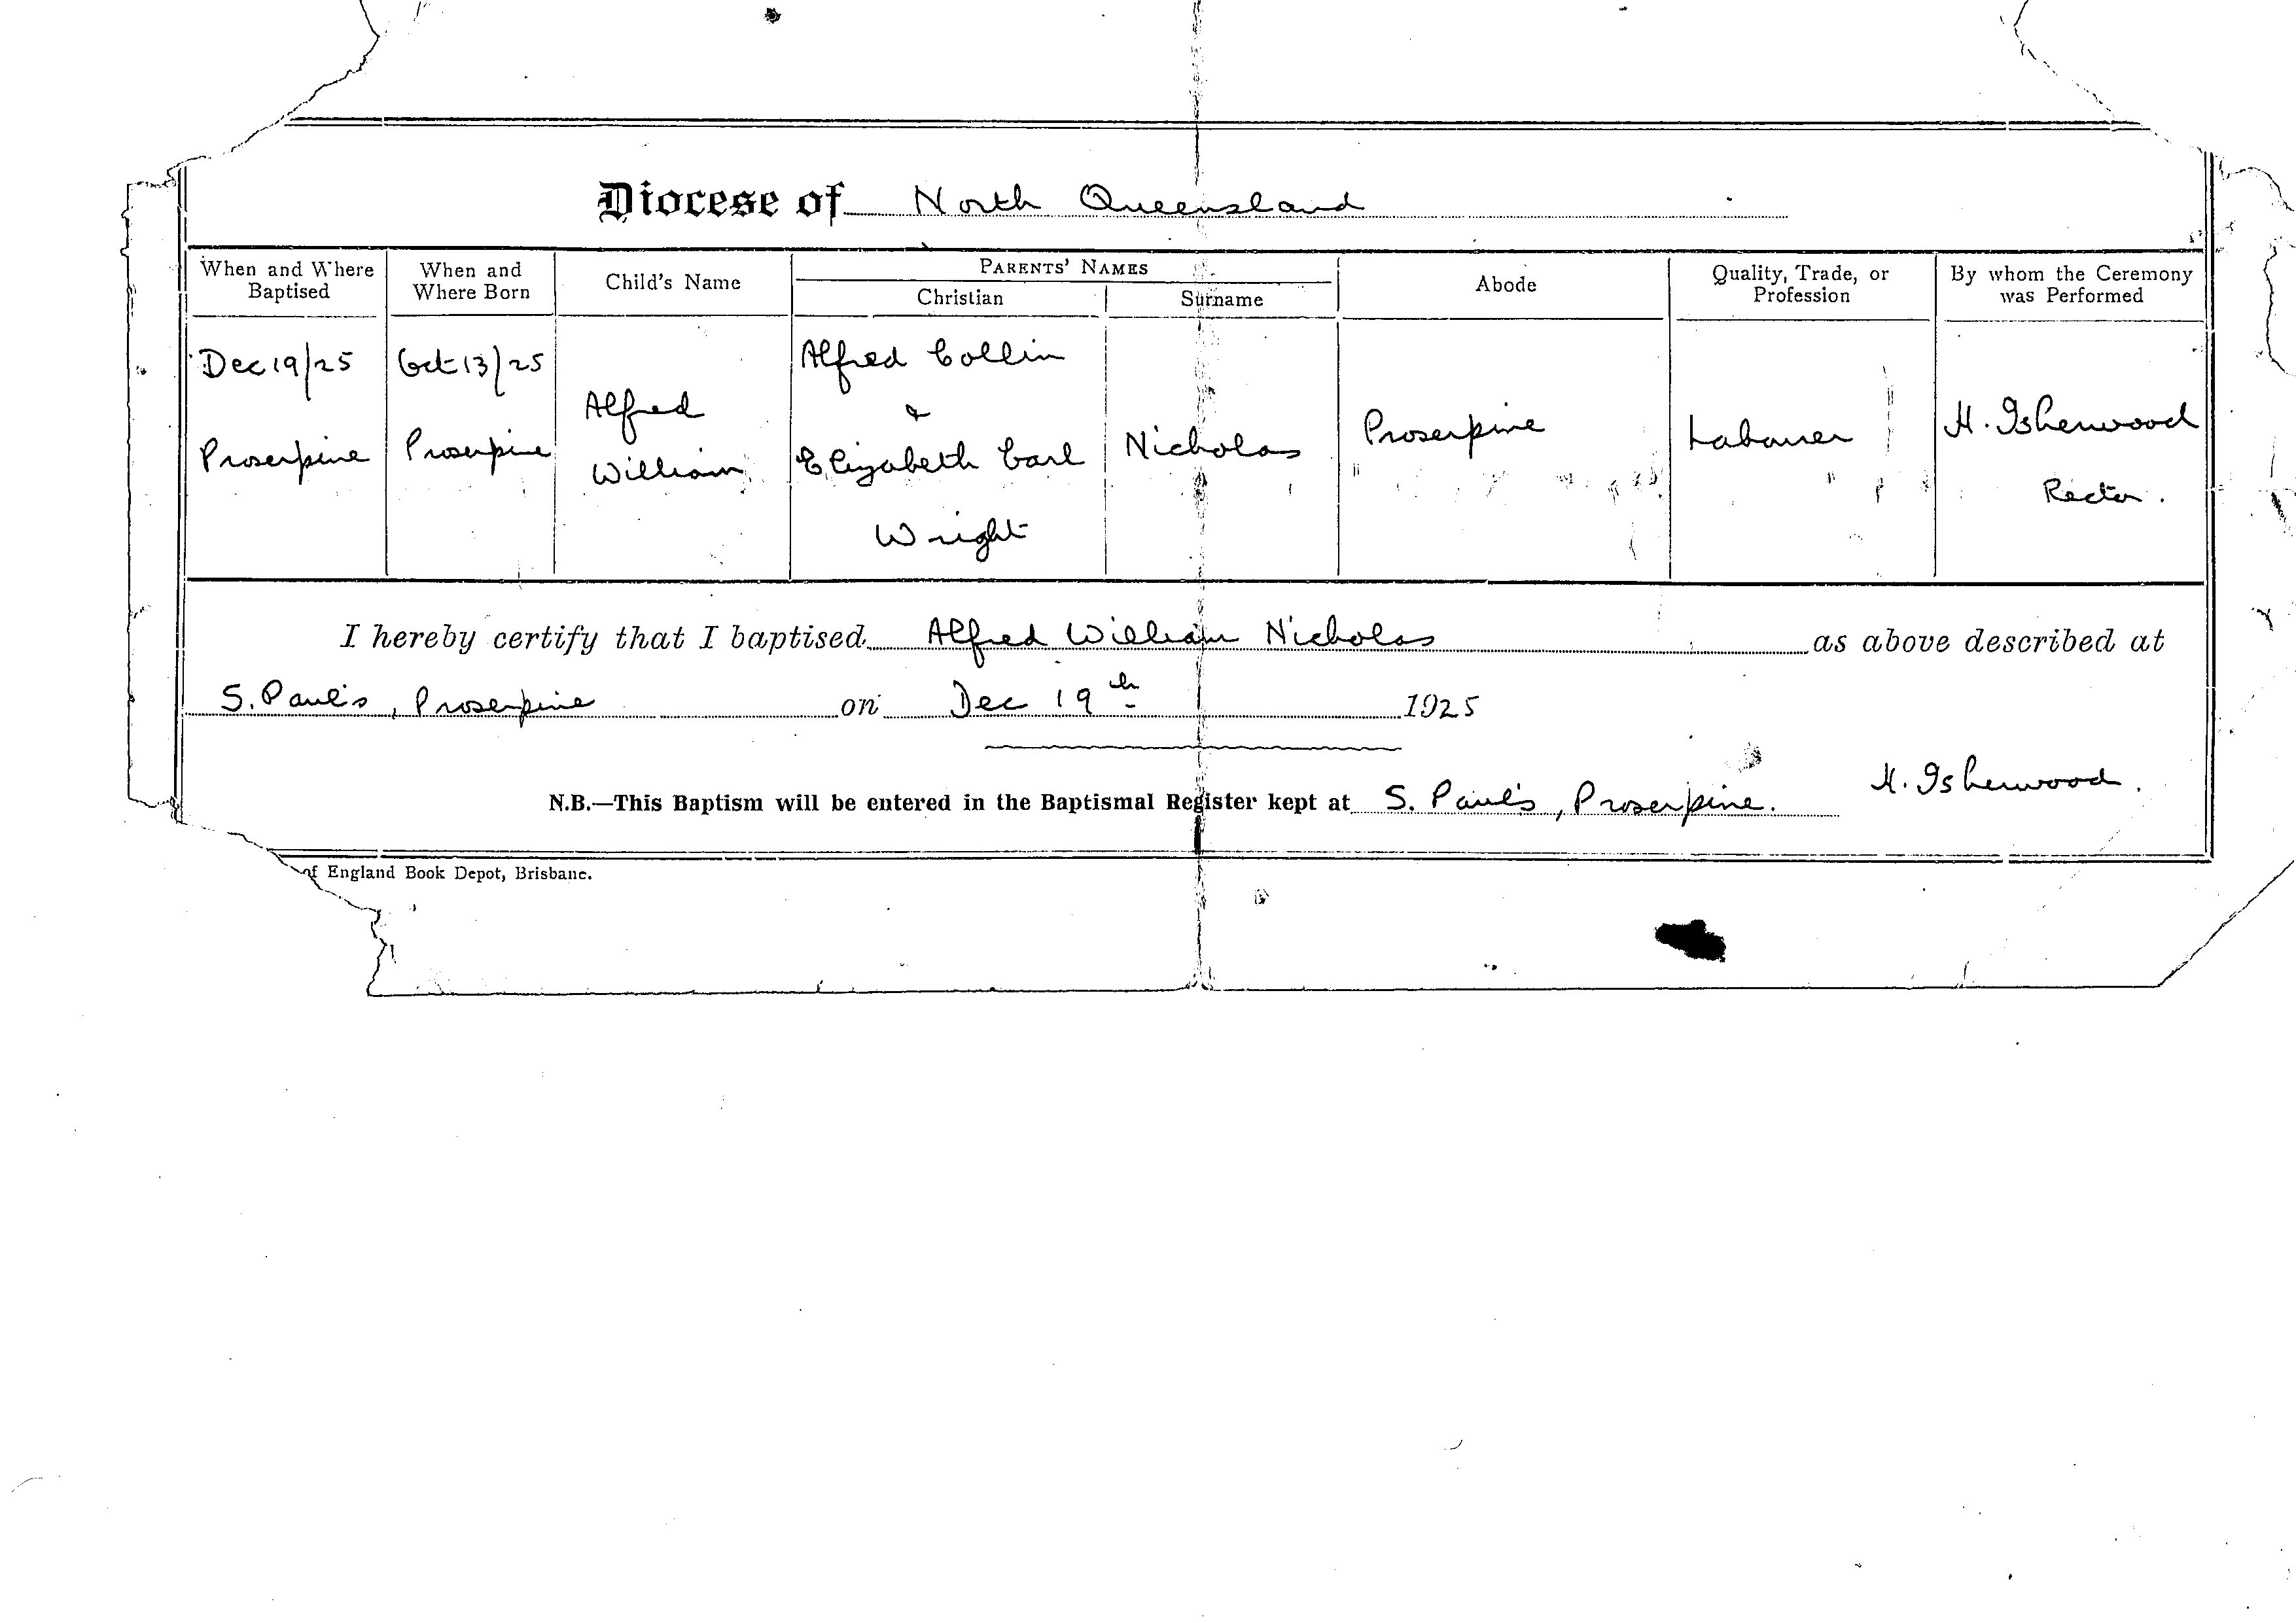 Diocese of North Queensland
When and Where Baptised
When and Where Born
Child's Name
PARENTS' NAMES
Christian
Surname
Abode
Quality, Trade, or Profession
By whom the Ceremony was Performed
Dec 19/25
Proserpine
Oct 13/25
Proserpine
Alfred
William
Alfred Collin
&
Elizabeth Carl
Wright
Nicholas
Proserpine
Labourer
H. Isherwood
Rector.
I hereby certify that I baptised Alfred William Nicholas as above described at
S. Paul's, Proserpine on Dec 19th 1925
N.B.—This Baptism will be entered in the Baptismal Register kept at S. Paul's, Proserpine.
H. Isherwood.
of England Book Depot, Brisbane.